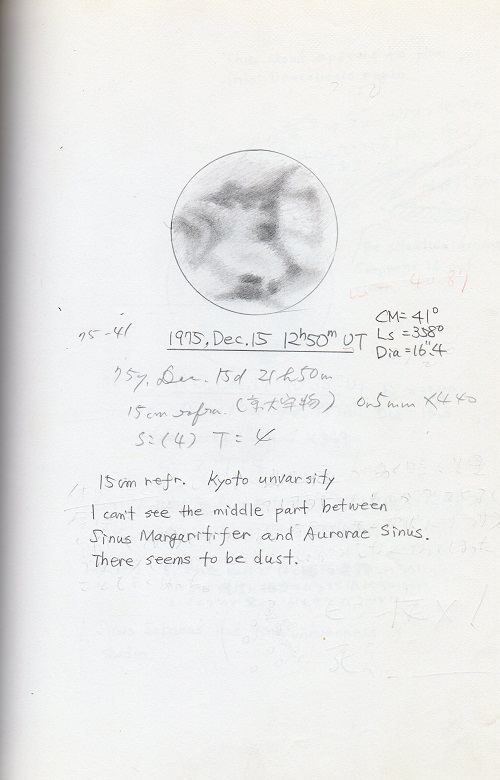 75-41
1975, Dec. 15 12h50m UT
CM=41°
Ls=358°
Dia=16".4
75y, Dec. 15d 21h50m
15cm refra. (京大宇物) Or5mm ×440
S=(4) T=4
15cm refr. Kyoto unvarsity
I can't see the middle part between
Sinus Margaritifer and Aurorae Sinus.
There seems to be dust.